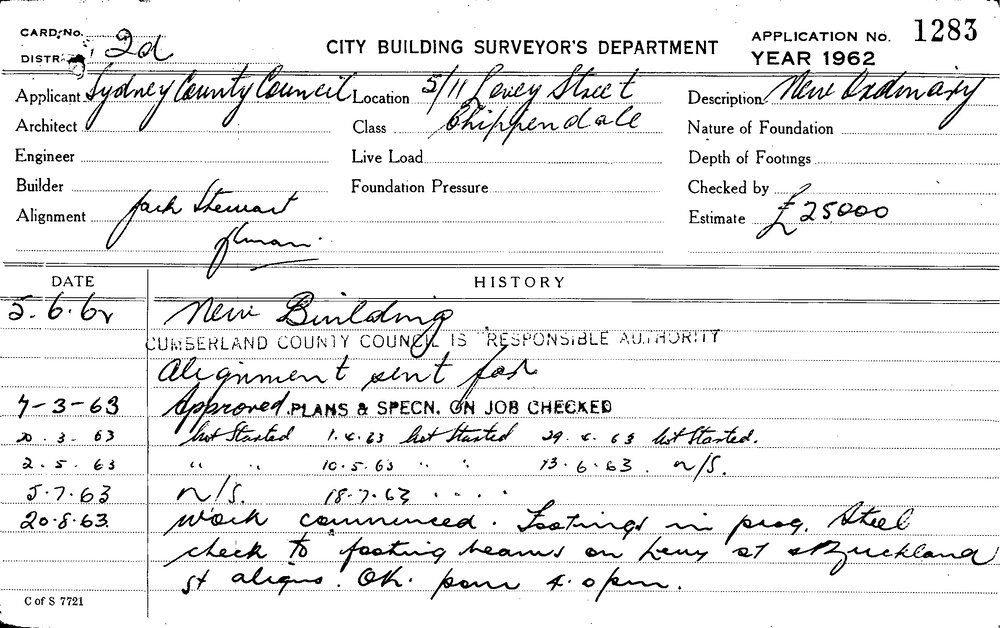 CARD No. 2d CITY BUILDING SURVEYOR'S DEPARTMENT APPLICATION No. 1283
DISTR. YEAR 1962
Applicant Sydney County Council Location 5/11 Levey Street Description New Ordinary
Architect Class Chippendale Nature of Foundation
Engineer Live Load Depth of Footings
Builder Foundation Pressure Checked by
Alignment Jack Stewart Estimate £25000
DATE HISTORY
5.6.62 New Building
CUMBERLAND COUNTY COUNCIL IS RESPONSIBLE AUTHORITY
Alignment sent for
7-3-63 Approved. PLANS & SPECN. ON JOB CHECKED
20.3.63 Not Started 1.4.63 Not Started 29.4.63 Not Started.
2.5.63 " " 10.5.63 " " 13.6.63. n/S.
5.7.63 n/S. 18.7.63 " "
20.8.63. Work commenced. Footings in prog. Steel
check to footing beams on Levy St & Buckland
st aligns. Ok. pour 4.0pm.
C of S 7721